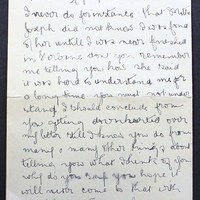 I never do for instance that Mother
Joseph did not know I was fond
of her until I was near finished
in dont you remember
me telling you that I said
it was hard to understand me for
a long time you must not under
stand, I should conclude from
you getting downhearted over
my letter all I know you do from
many & many other things about
telling you what I think of you
why do you say you hope it
will never come to that with